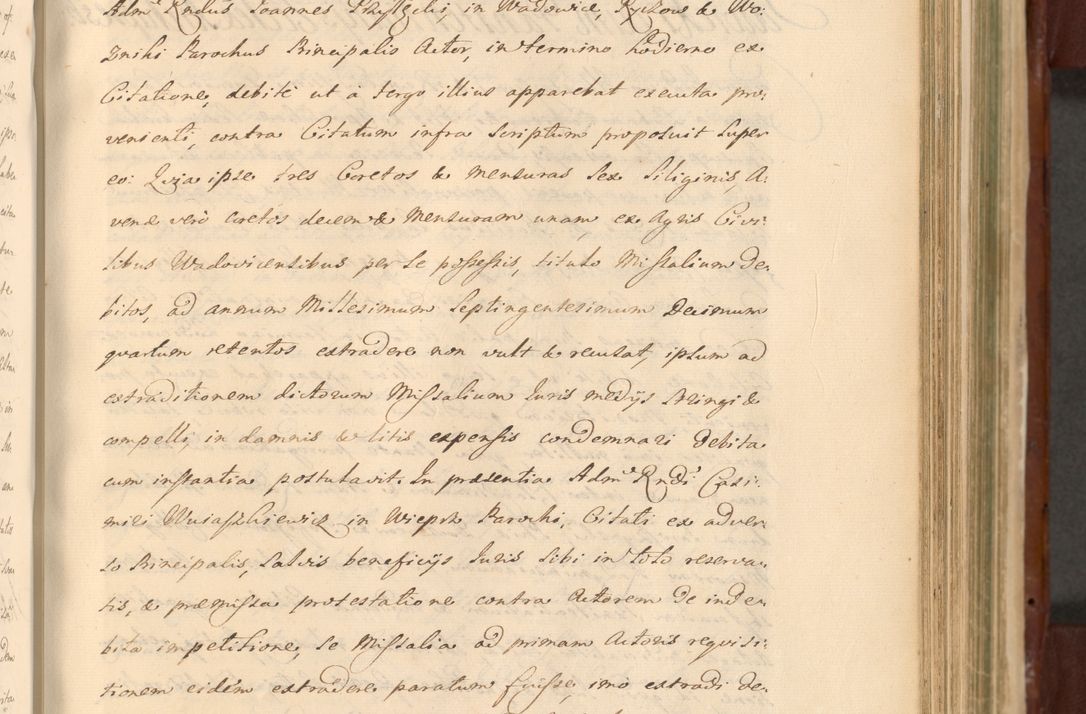 Adm. Rndus Joannes Przyłęcki, in Wadowice, Ryczow & Wo:
zniki Parochus Principalis Actor, in termino hodierno ex
Citatione, debite ut à tergo illius apparebat executa pro:
venienti, contra Citatum infra Scriptum proposuit super
eo: Quia ipse tres Coretos & Mensuras Sex Siliginis, A:
venæ verò coretos decem & Mensuram unam, ex Agris Civi:
libus Wadovicensibus per se possessis, titulo Missalium De:
bitos, ad annum Millesimum Septingentesimum Decimum
quartum retentos extradere non vult & recusat, ipsum ad
extraditionem dictorum Missalium Juris medijs stringi &
compelli, in damnis & litis expensis condemnari debita
cum instantia postulavit. In præsentia Adm. Rndi Casi:
miri Wuiaszkiewicz in Wieprz Parochi, Citati ex adver:
so Principalis, Salvis beneficijs Juris Sibi in toto reserva:
tis, & præmissa protestatione contra Actorem de inde:
bita impetitione, se Missalia ad primam Actoris requisi:
tionem eidem extradere paratum fuisse, imò extradi de: